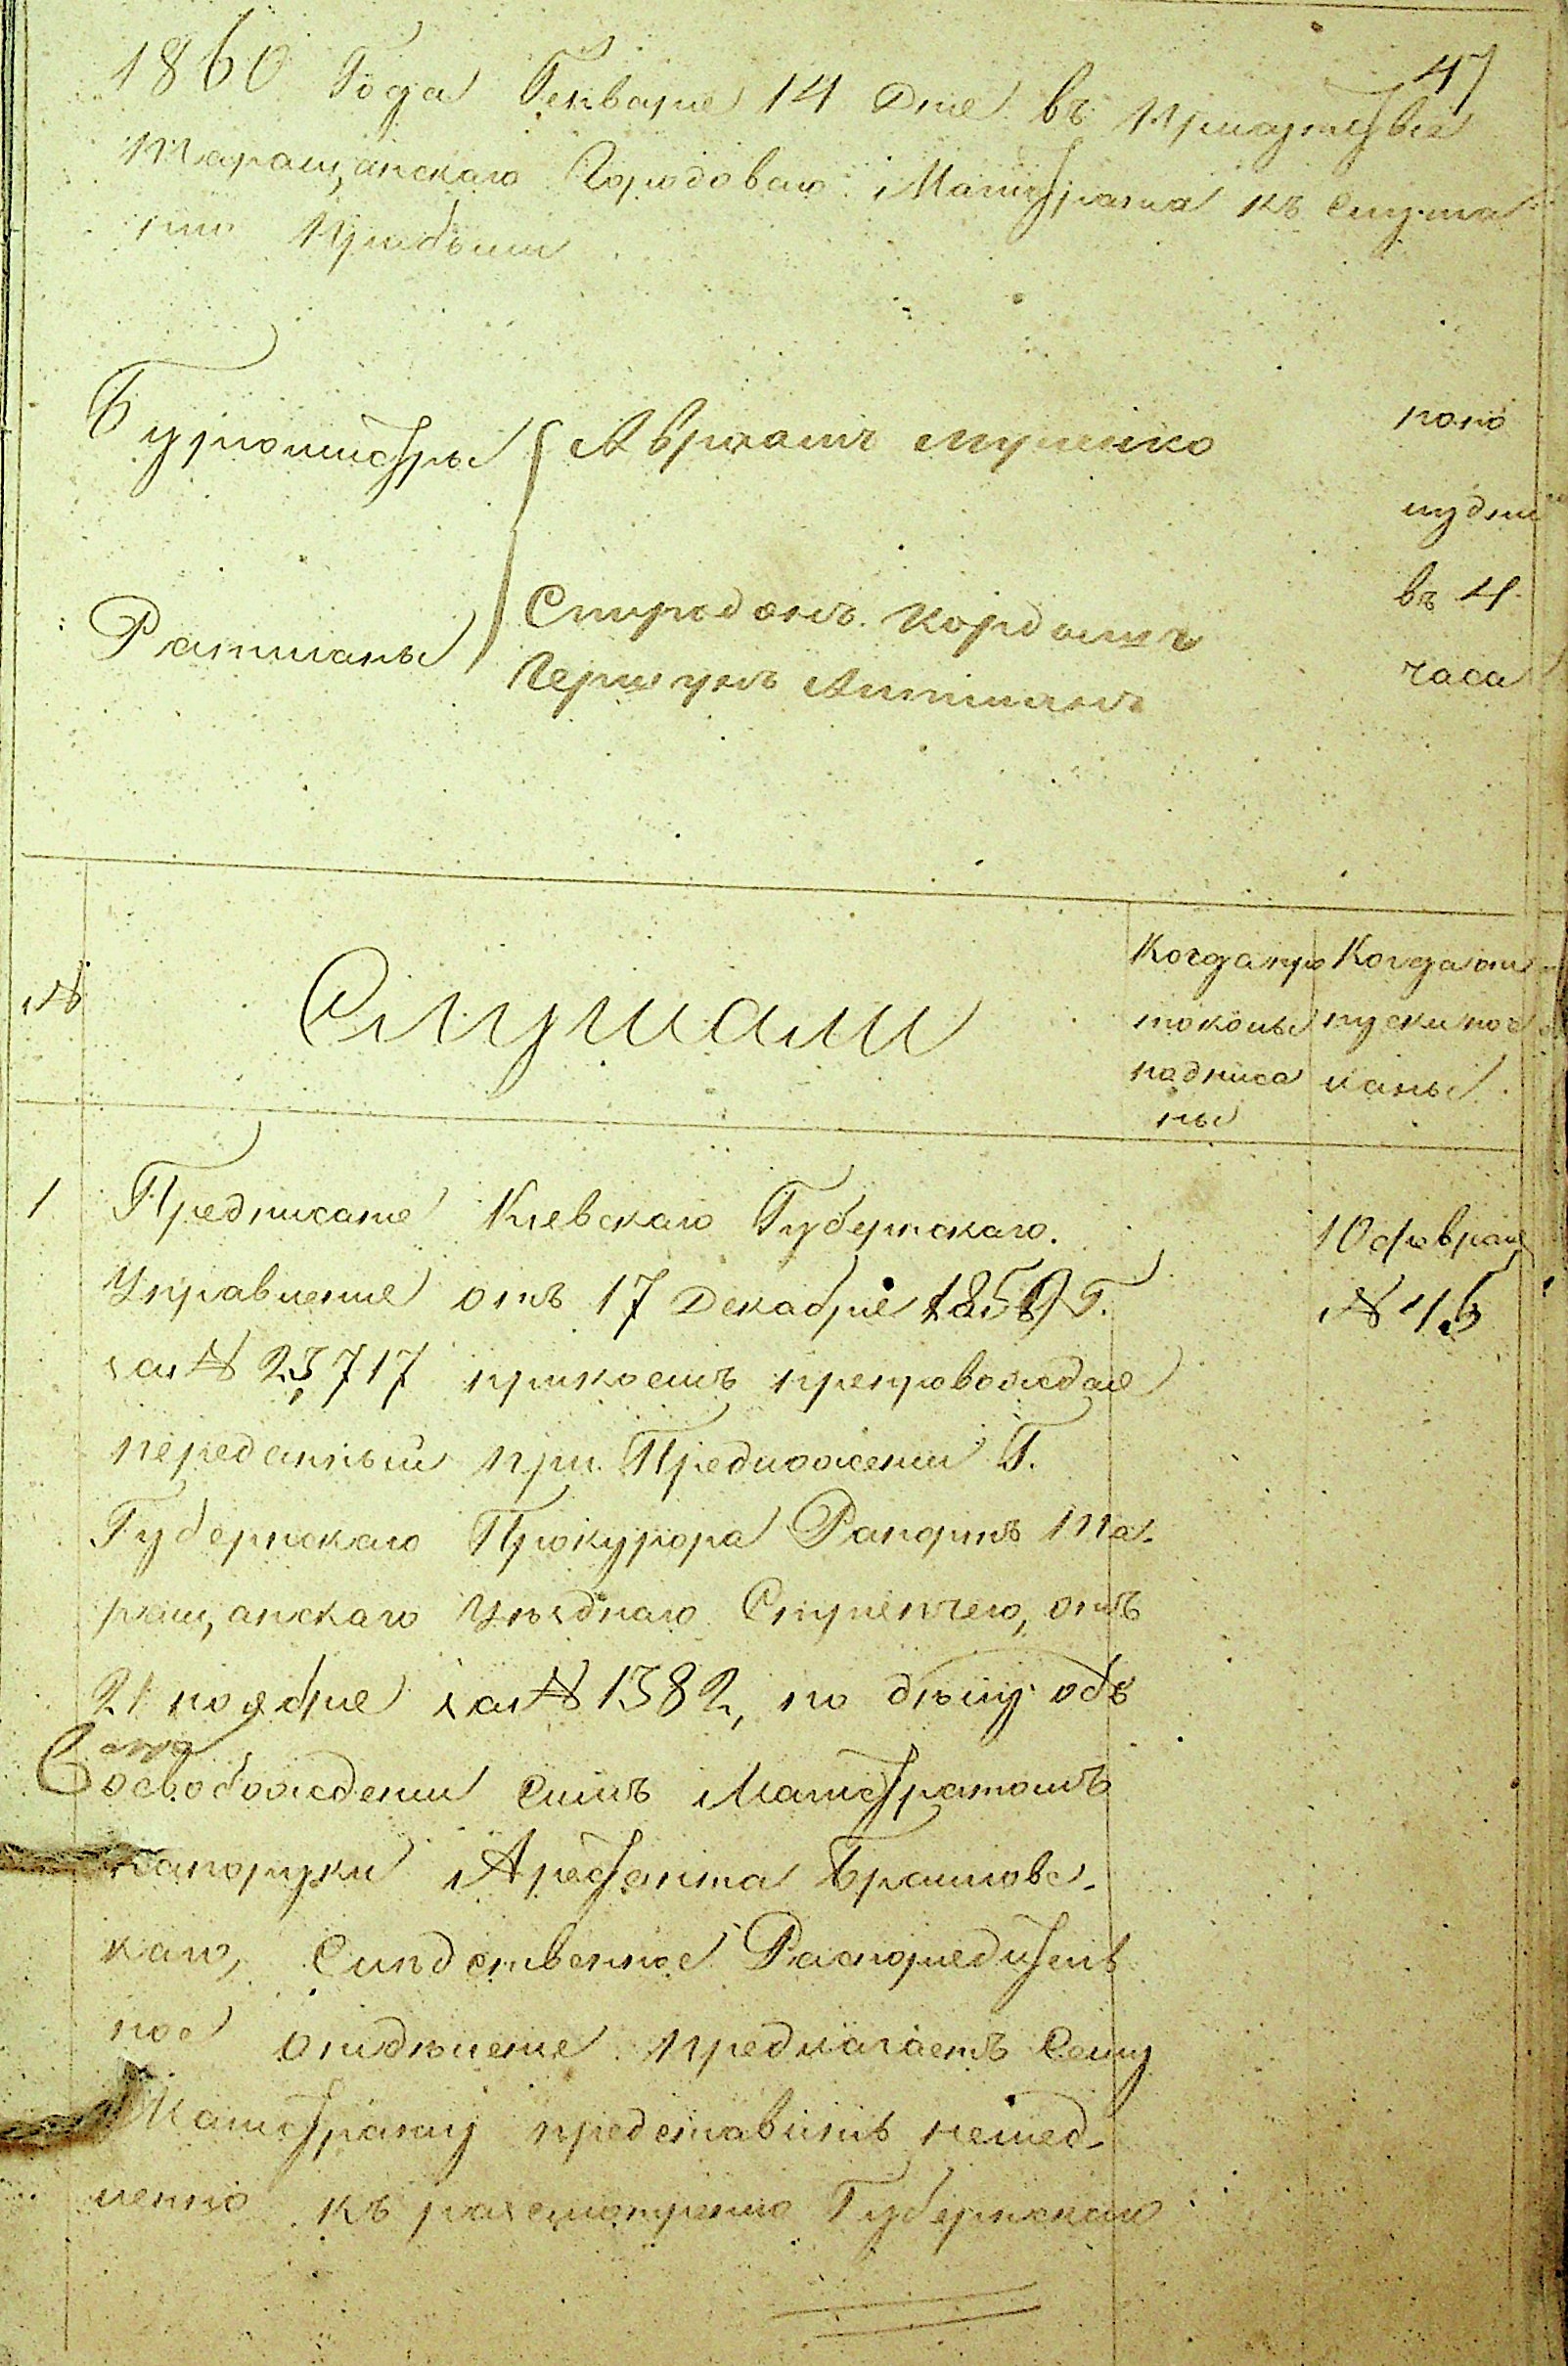 47
1860 Года Генваря 14 Дня въ Присутствіе
Таращанскаго Городоваго Магистрата къ слуша
нію Прибыли
Бургомистры Авраамъ
попо
лудни
въ 4
часа
Ратманы Спиридонъ Кордашъ
Гершунъ
№
Слушали
Когда про
токолы
подписа
ны
Когда от
пуски пос
ланы
1
Предписаніе Кіевскаго Губернскаго
Управленія отъ 17 Декабря 1859 Г.
за № 23,717 при коемъ препровождая
переданный при Предложеніи Г.
Губернскаго Прокурора Рапортъ Та-
ращанскаго Уѣзднаго Стряпчего, отъ
21 ноября за № 1382, по дѣлу объ
освобожденіи симъ Магистратомъ
на поруки Арестанта Браиловс-
каго, Слѣдственное Распорядитель
ное отдѣленіе предлагаетъ Сему
Магистрату представить немед-
ленно къ разсмотренію Губернскаго
10 февраля
№ 46